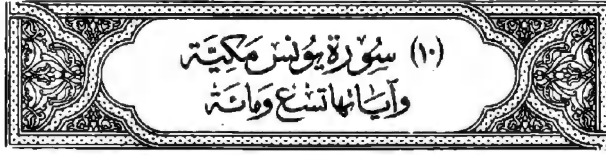 (١٠) سُورَة يُونسَ مَكِيَّة
وَآيَاتهَا تِسْع وَمائة